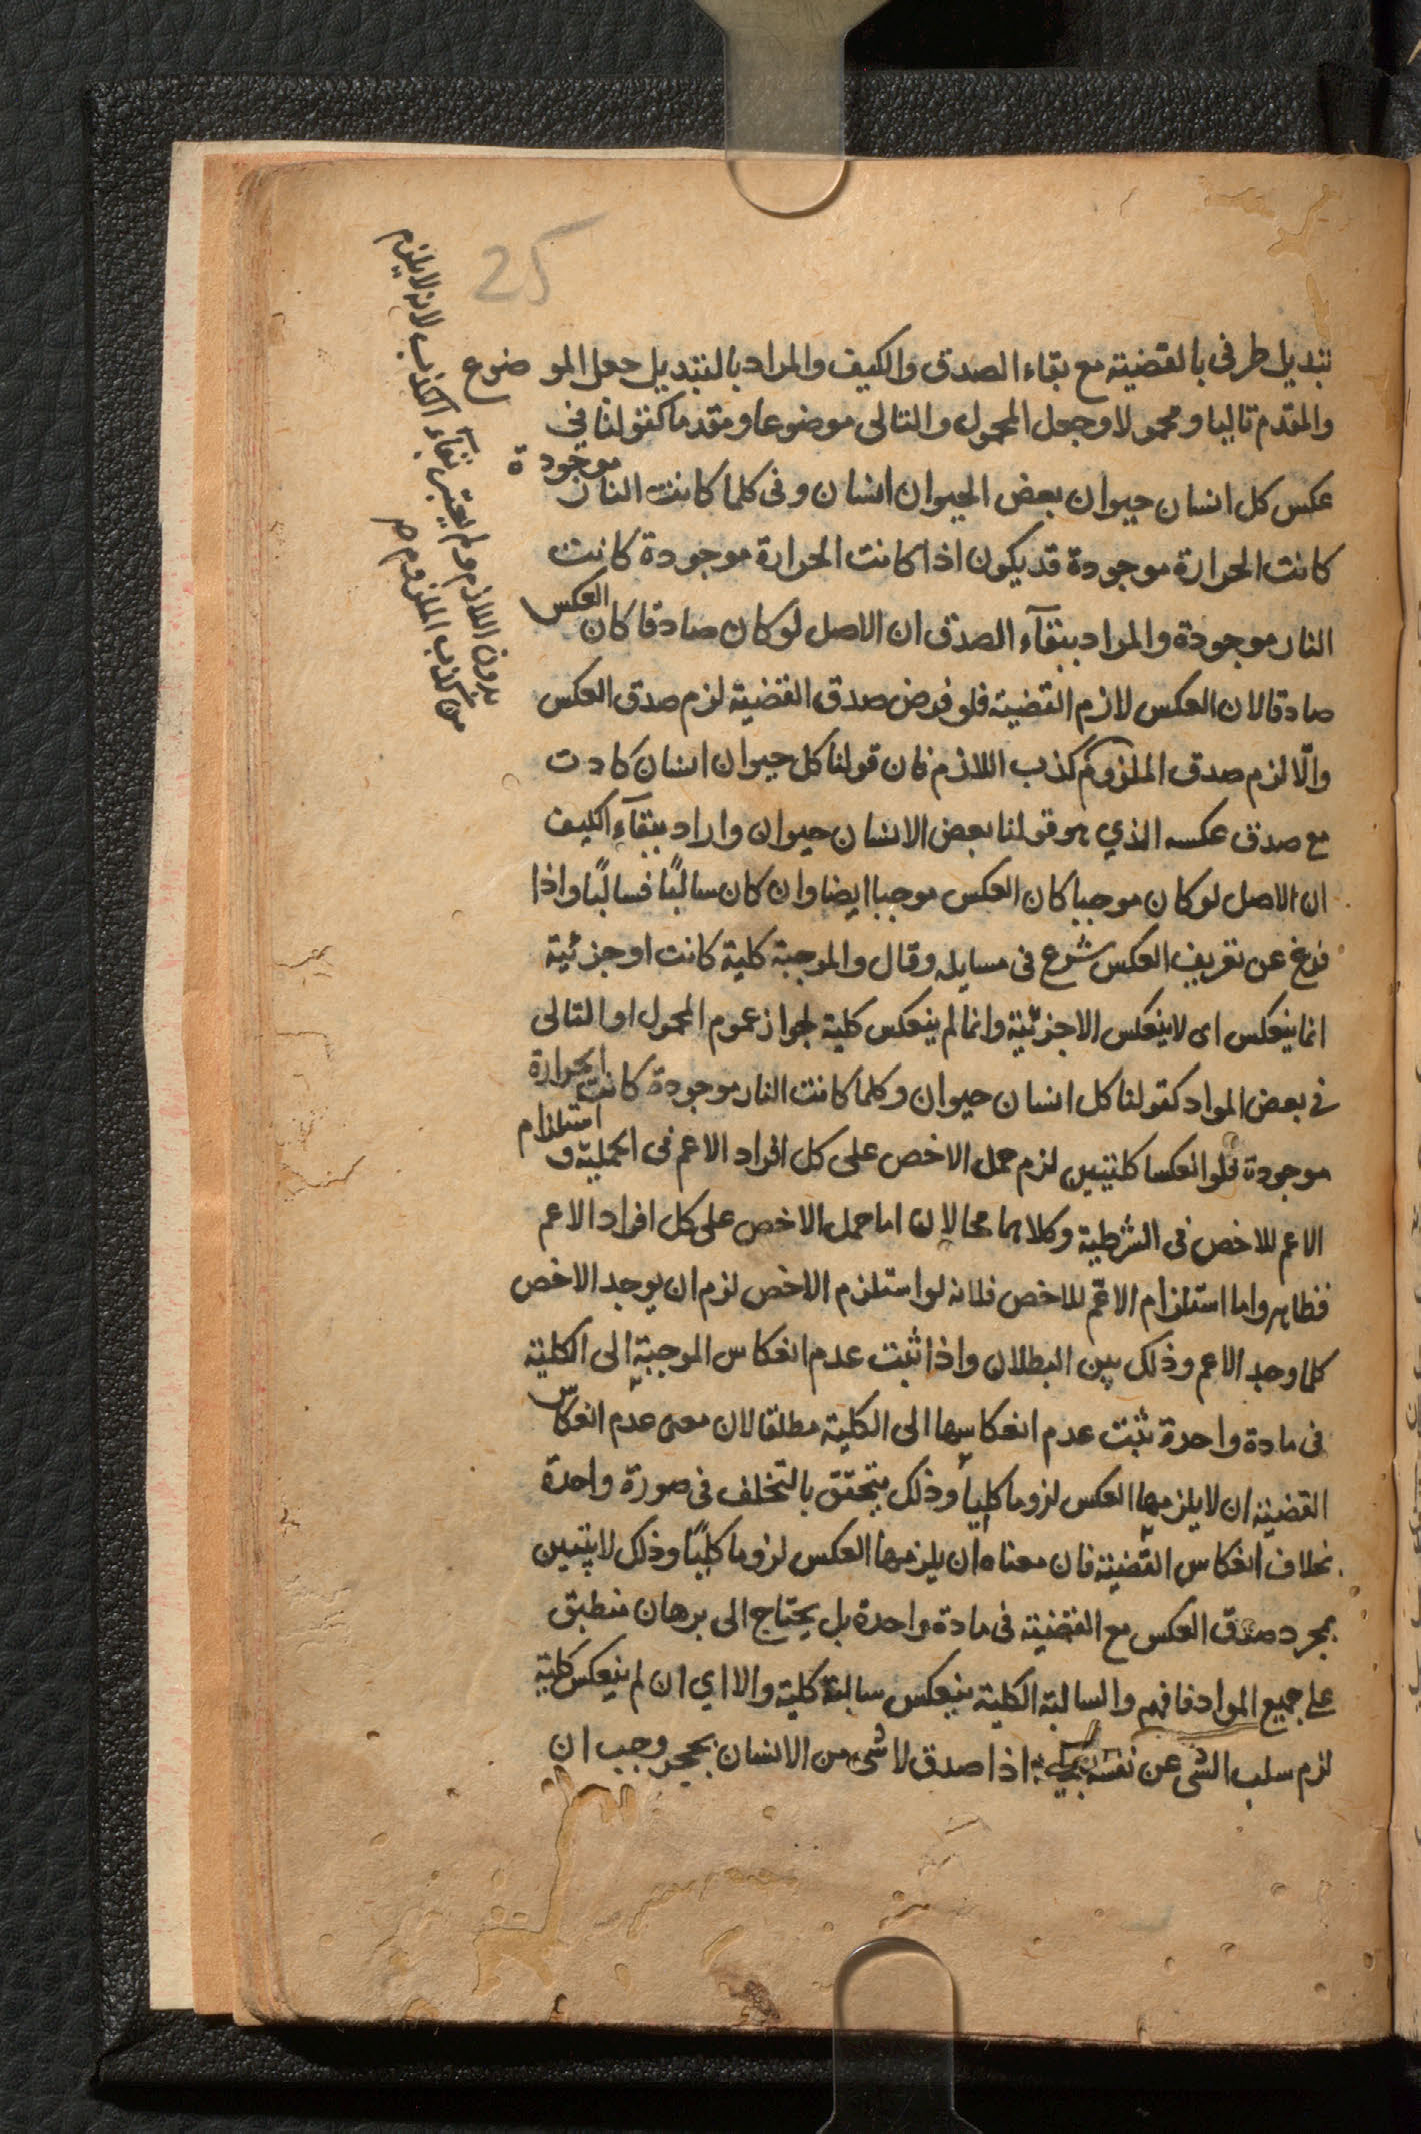 25
تبديل طرفى بالقضية مع بقاء الصدق والكيف والمراد بالتبديل جعل الموضوع
والمقدم تاليا ومحمولا وجعل المحمول والتالى موضوعا ومقدما كقولنا في
عكس كل انسان حيوان بعض الحيوان انسان وفى كلما كانت النار موجودة
كانت الحرارة موجودة قد يكون اذا كانت الحرارة موجودة كانت
النار موجودة والمراد ببقآء الصدق ان الاصل لو كان صادقا كان العكس
صادقا لان العكس لازم القضية فلو فرض صدق القضية لزم صدق العكس
والّا لزم صدق الملزوم كذب اللازم فان قولنا كل حيوان انسان كادت
مع صدق عكسه الذي هو قولنا بعض الانسان حيوان واراد ببقآء الكيف
ان الاصل لو كان موجبا كان العكس موجبا ايضا وان كان سالبًا فسالبًا واذا
فرغ عن تعريف العكس شرع فى مسايله وقال والموجبة كلية كانت او جزئية
انما ينعكس اى لا ينعكس الا جزئية وانما لم ينعكس كلية لجواز عموم المحمول او التالى
في بعض المواد كقولنا كل انسان حيوان وكلما كانت النار موجودة كانت الحرارة
موجودة فلو انعكسا كليتين لزم حمل الاخص على كل افراد الاعم فى الحملية و استلزام
الاعم للاخص فى الشرطية وكلاهما محالان اما حمل الاخص على كل افراد الاعم
فظاهر واما استلزام الاعم للاخص فلانه لو استلزم الاخص لزم ان يوجد الاخص
كلما وجد الاعم وذلك بين البطلان واذا ثبت عدم انعكاس الموجبة الى الكلية
فى مادة واحدة ثبت عدم انعكاسها الى الكلية مطلقا لان معنى عدم انعكاس
القضية ان لا يلزمها العكس لزوما كليا وذلك يتحقق بالتخلف فى صورة واحدة
بخلاف انعكاس القضية فان معناه ان يلزمها العكس لزوما كليًا وذلك لا يتبين
بمجرد صدق العكس مع القضية فى مادة واحدة بل يحتاج الى برهان منطبق
على جميع المواد فافهم والسالبة الكلية ينعكس سالبة كلية والا اي ان لم ينعكس كلية
لزم سلب الشى عن نفسه اذا صدق لا شى من الانسان بحجر وجب ان
بدون اللازم ولم يعتبر بقآء الكذب لانه لا يلزم
من كذب الملزوم